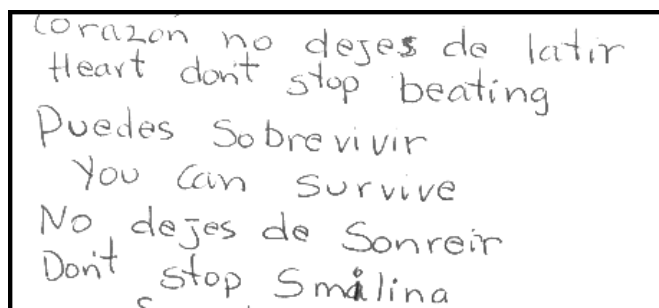 Corazón no dejes de latir
Heart don't stop beating
Puedes Sobrevivir
You Can Survive
No dejes de Sonreir
Don't stop Smiling